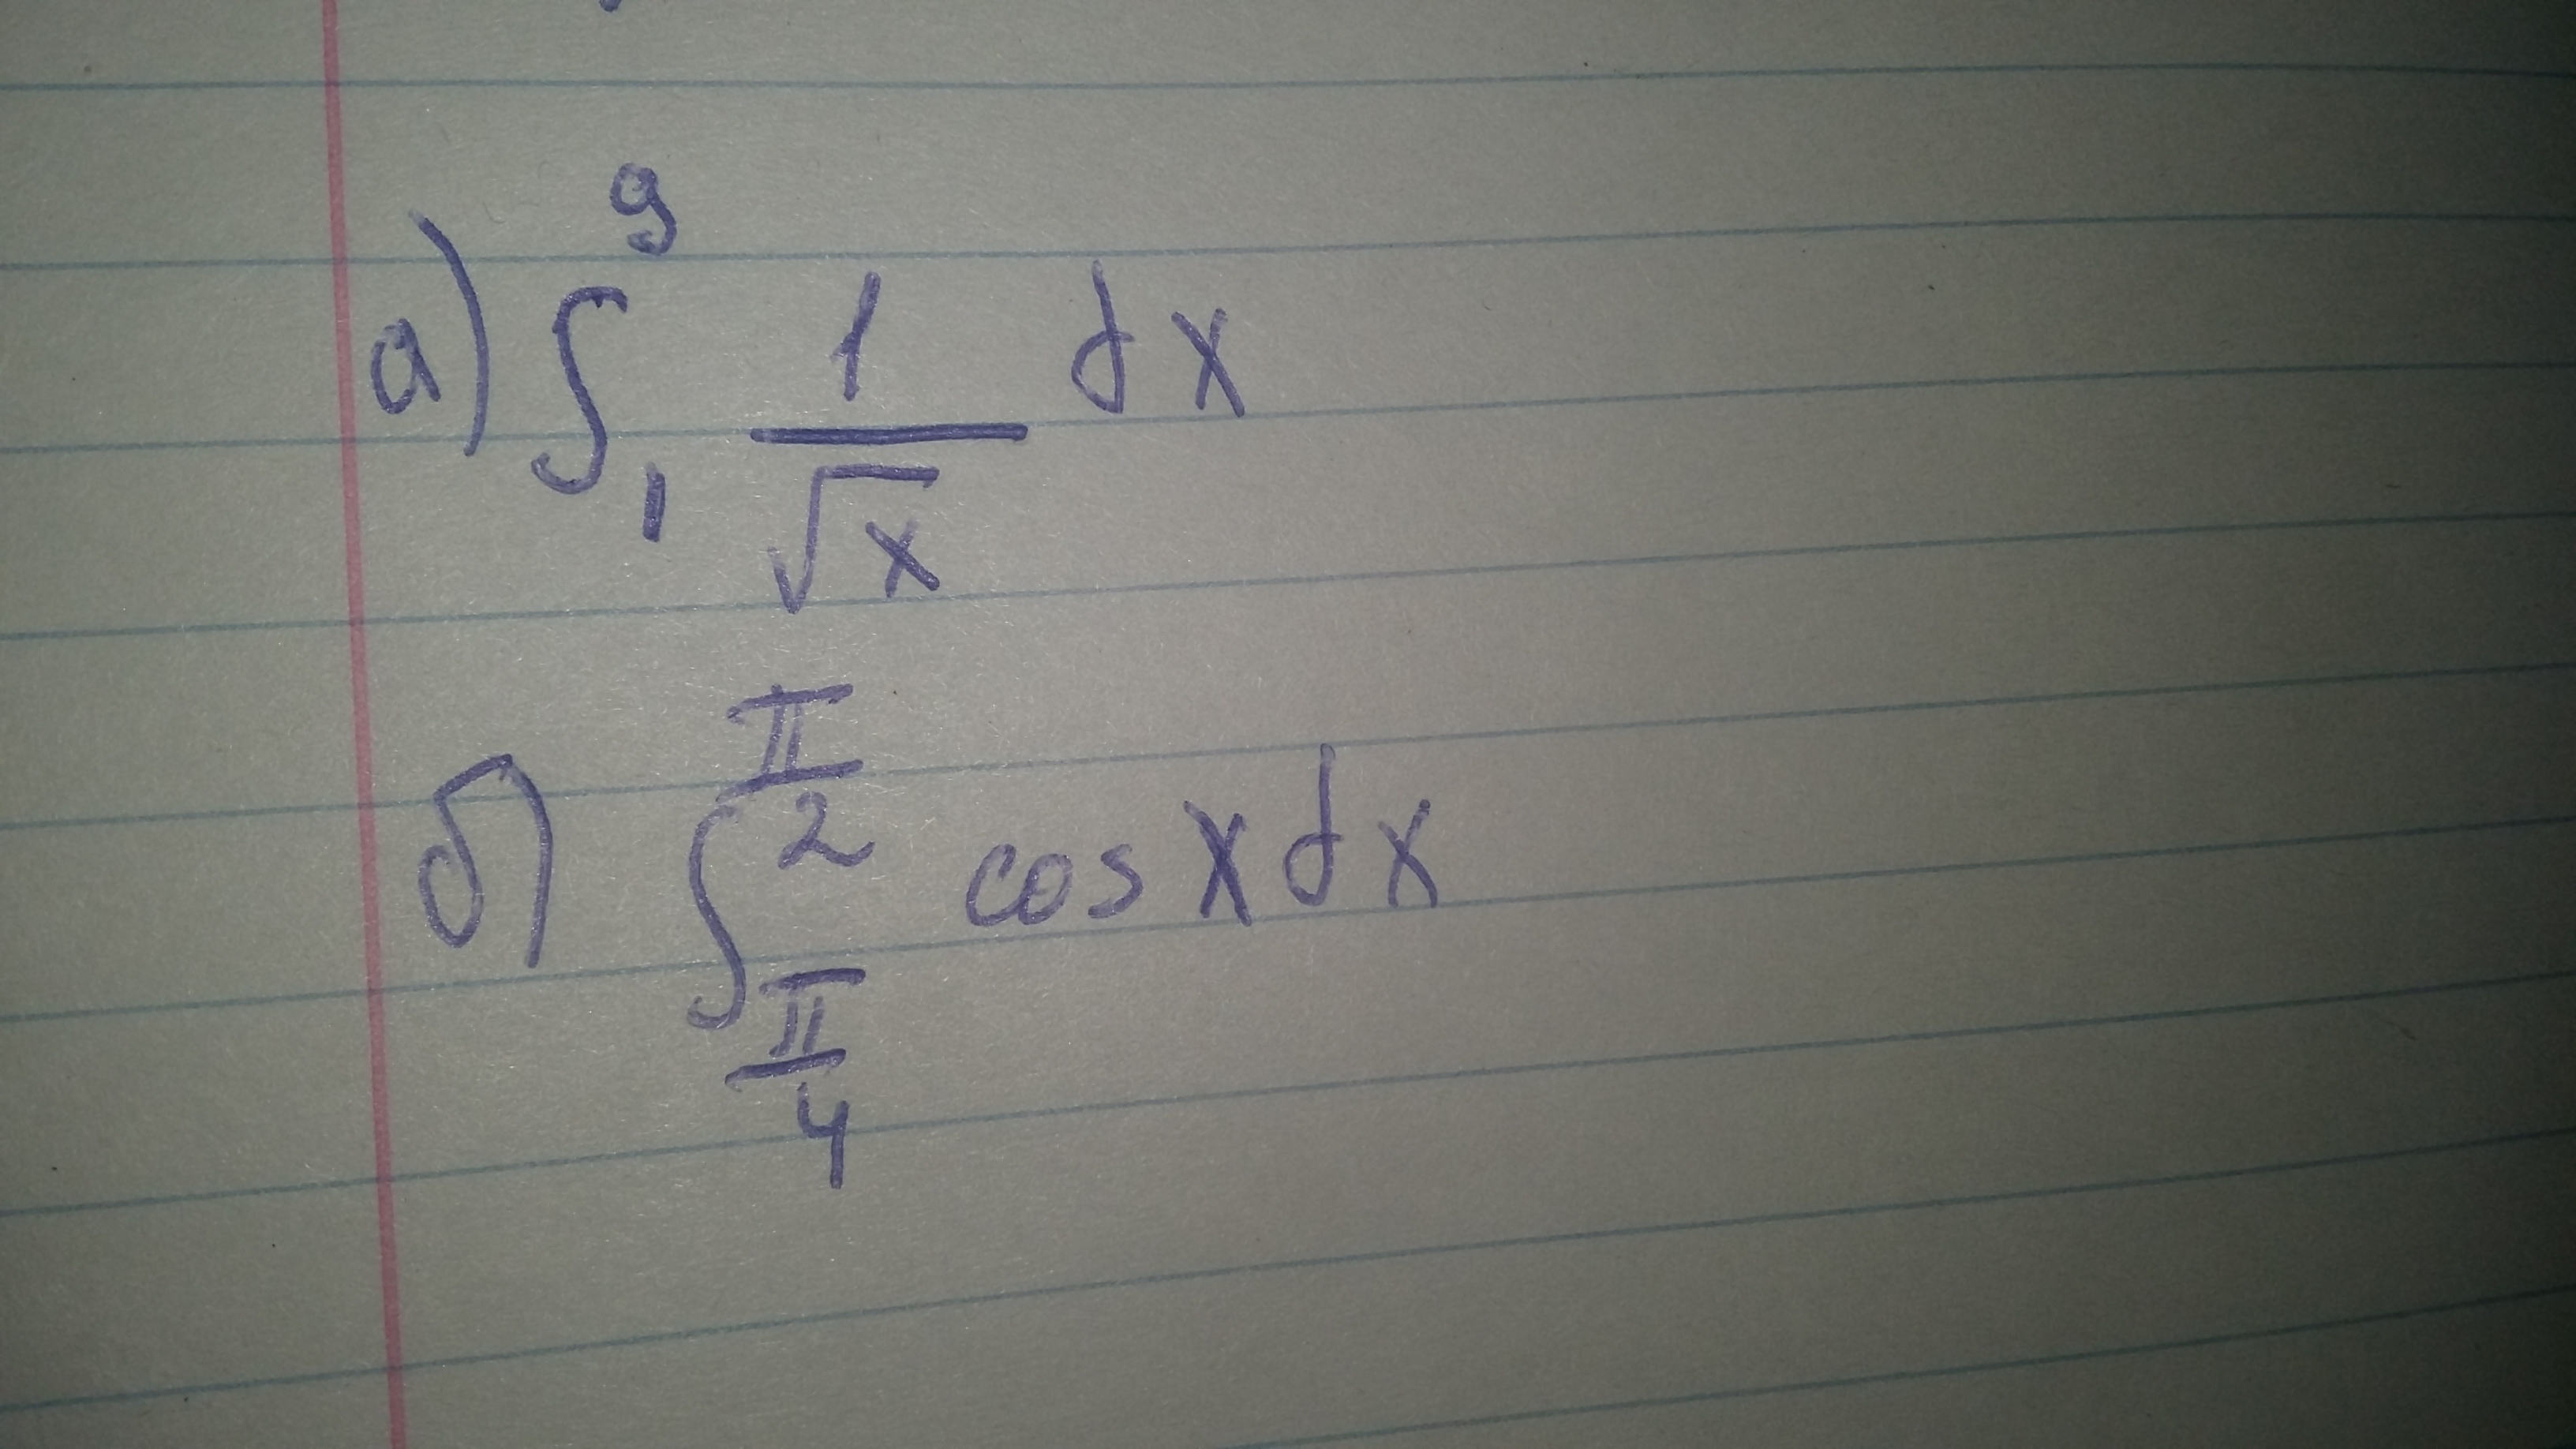 а) ∫₁⁹ 1/√x dx
б) ∫_{π/4}^{π/2} cos x dx